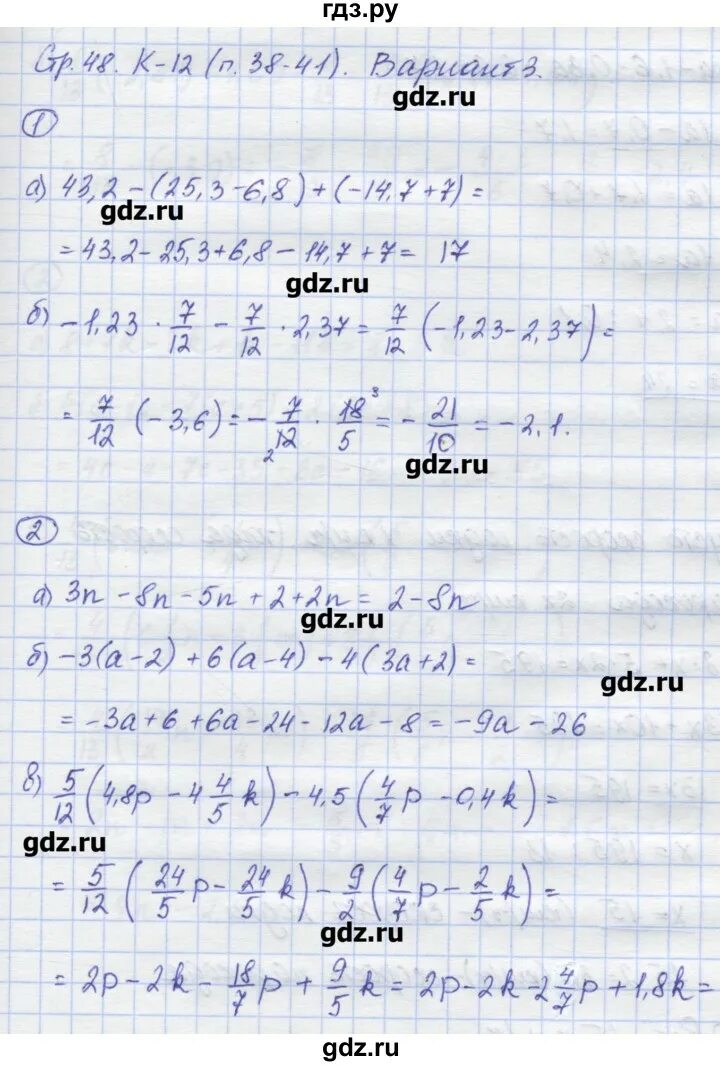 гдз.ру
Стр. 48. К-12 (п. 38-41). Вариант 3.
gdz.ru
1
а) 43,2 - (25,3 - 6,8) + (-14,7 + 7) =
gdz.ru
= 43,2 - 25,3 + 6,8 - 14,7 + 7 = 17
gdz.ru
б) -1,23 · 7/12 - 7/12 · 2,37 = 7/12 (-1,23 - 2,37) =
= 7/12 (-3,6) = - 7/12 2 · 18/5 3 = - 21/10 = -2,1.
gdz.ru
2
а) 3n - 8n - 5n + 2 + 2n = 2 - 8n
gdz.ru
б) -3(a-2) + 6(a-4) - 4(3a+2) =
gdz.ru
= -3a + 6 + 6a - 24 - 12a - 8 = -9a - 26
в) 5/12 (4,8p - 4 4/5 k) - 4,5 (4/7 p - 0,4k) =
gdz.ru
= 5/12 (24/5 p - 24/5 k) - 9/2 (4/7 p - 2/5 k) =
gdz.ru
= 2p - 2k - 18/7 p + 9/5 k = 2p - 2k - 2 4/7 p + 1,8k =
gdz.ru